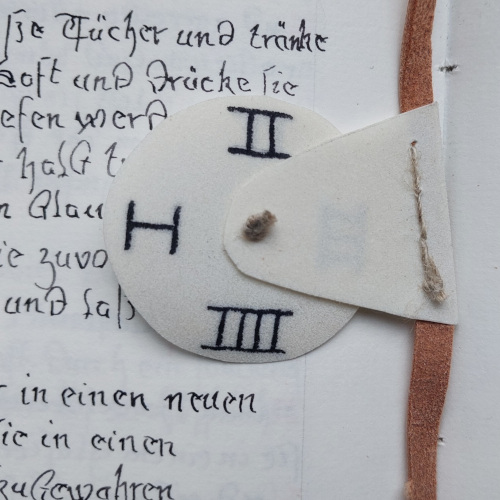 ſße Tücher und tränke
Saft und Drücke ſie
efen werd
halß t
n Glau
ie zuvo
und laß
II
I
IIII
III
in einen neuen
ſie in einen
zuGewahren